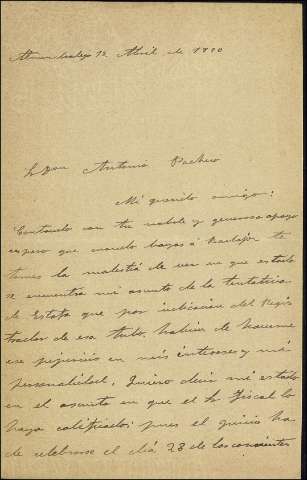 Almendralejo 12 Abril de 1890
Sr Don Antonio Pacheco
Mi querido amigo:
Contando con tu noble y generoso apoyo
espero que cuando bayas á Badajoz te
tomes la molestia de ver en que estado
se encuentra mi asunto de la tentativa
de Estafa que por indicacion del Regis
trador de esa trato, habian de hacerme
ese perjuicio en mis intereses y mi
personalidad. Quiero decir mi estado
en el asunto en que el Sr Fiscal lo
haya calificado; pues el juicio ha
de celebrarse el dia 28 de los corrientes